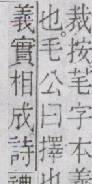 裁按芼字本義
也毛公曰擇也
義實相成詩禮